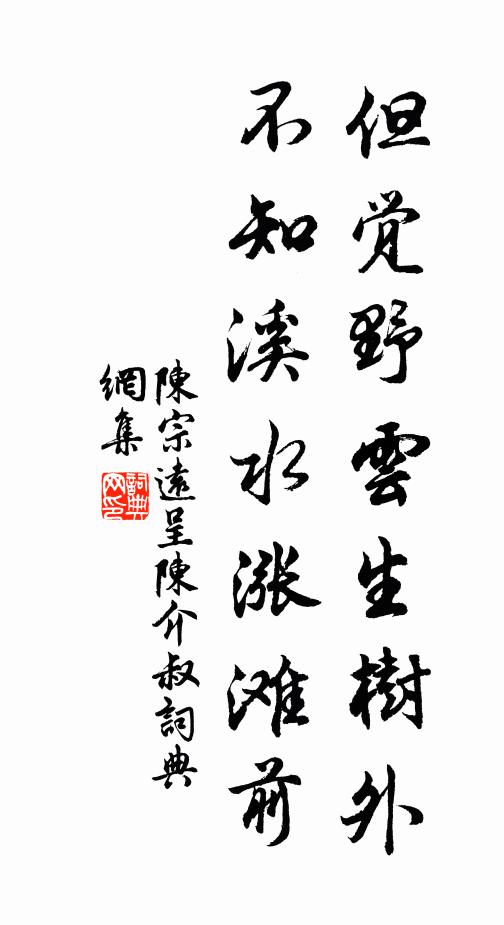 但觉野雲生樹外
不知溪水漲滩前
陳宗遠呈陳介叔詞典
網集
詞典
网印